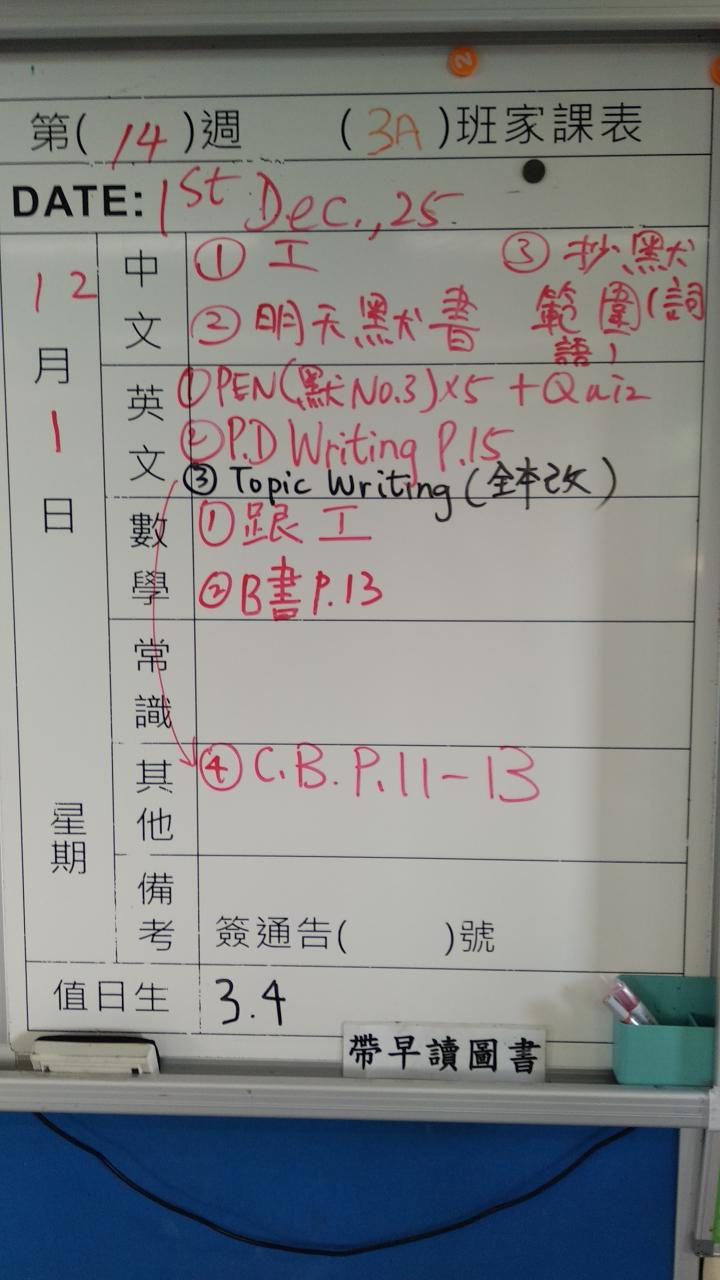 第( 14 )週 ( 3A )班家課表
DATE: 1st Dec., 25.
12月1日
星期
中文
① 工
③ 抄默
② 明天默書 範圍(詞
語)
英文
① PEN(默No.3)x5 + Quiz
② P.D Writing P.15
③ Topic Writing (全本改)
數學
① 跟工
② B書 P.13
常識
其他
④ C.B. P.11-13
備考
簽通告( )號
值日生
3.4
帶早讀圖書
2